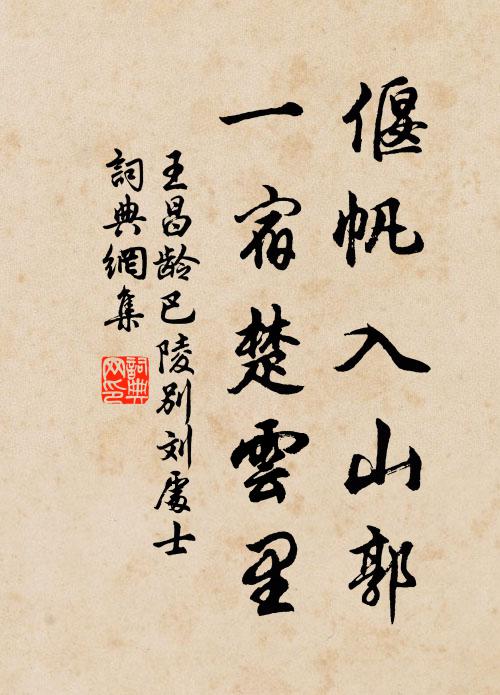 偃帆入山郭
一宿楚雲里
王昌龄巴陵别刘處士
詞典網集
詞典网印